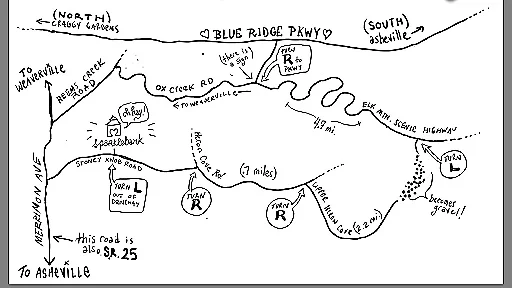 (NORTH)
CRAGGY GARDENS
BLUE RIDGE PKWY
(SOUTH)
asheville
(there is
a sign)
TURN
R TO
PKWY
TO
WEAVERVILLE
REEMS CREEK
ROAD
OX CREEK RD
TO WEAVERVILLE
4.9 mi.
ELK MTN. SCENIC HIGHWAY
TURN
L
oh hey!
Sparklebarn
STONEY KNOB ROAD
TURN L
OUT OF
DRIVEWAY
(.7 miles)
TURN
R
TURN
R
(2.2 mi)
becomes
gravel!
MERRIMON AVE
this road is
also S.R. 25
TO ASHEVILLE